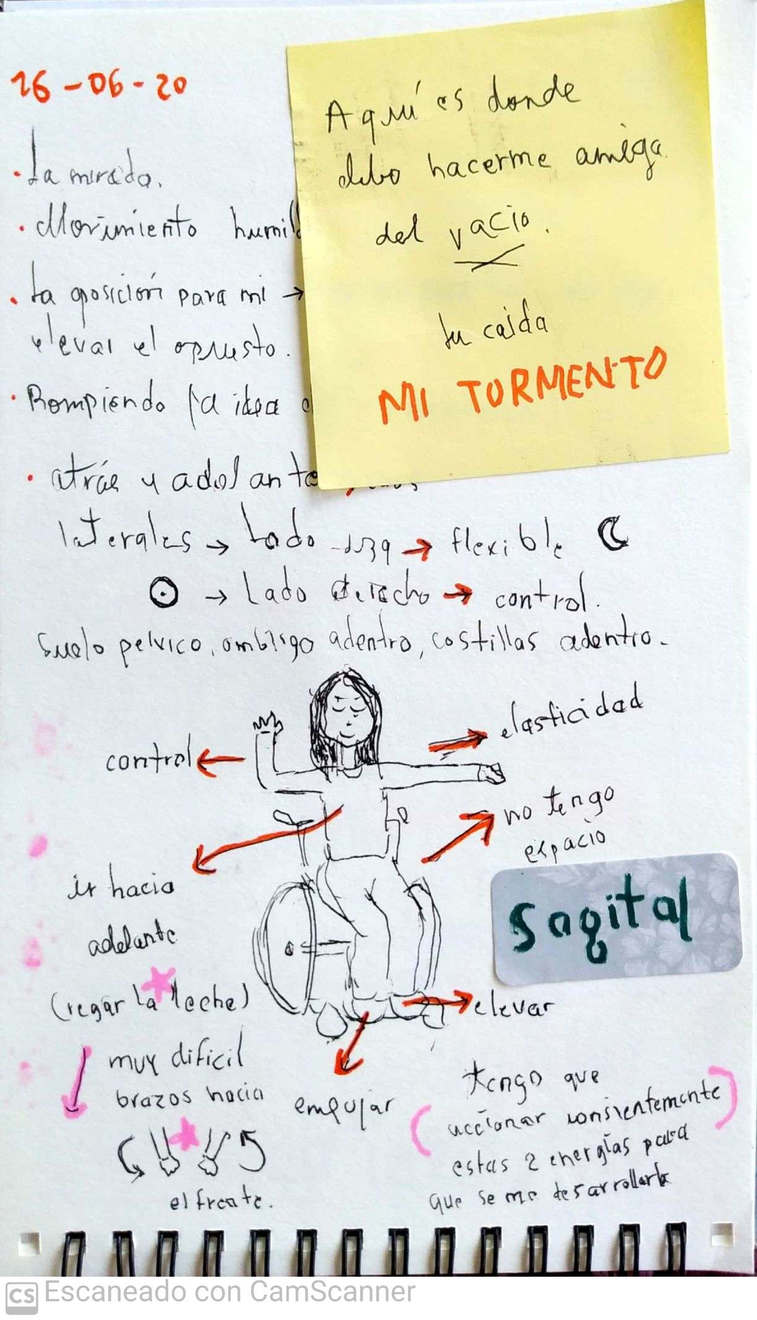 16-06-20
Aquí es donde
debo hacerme amiga
del vacio.
tu caida
MI TORMENTO
• La mirada.
• Movimiento humil
• La oposición para mi →
elevar el opuesto.
• Rompiendo la idea
• atrás y adelante
laterales → Lado izq → flexible
→ Lado derecho → control.
Suelo pelvico, ombligo adentro, costillas adentro.
elasticidad
control
no tengo
espacio
ir hacia
adelante
Sagital
(regar la leche)
elevar
muy dificil
brazos hacia
el frente.
empujar
tengo que
(accionar consientemente)
estas 2 energías para
que se me desarrollark
CS Escaneado con CamScanner